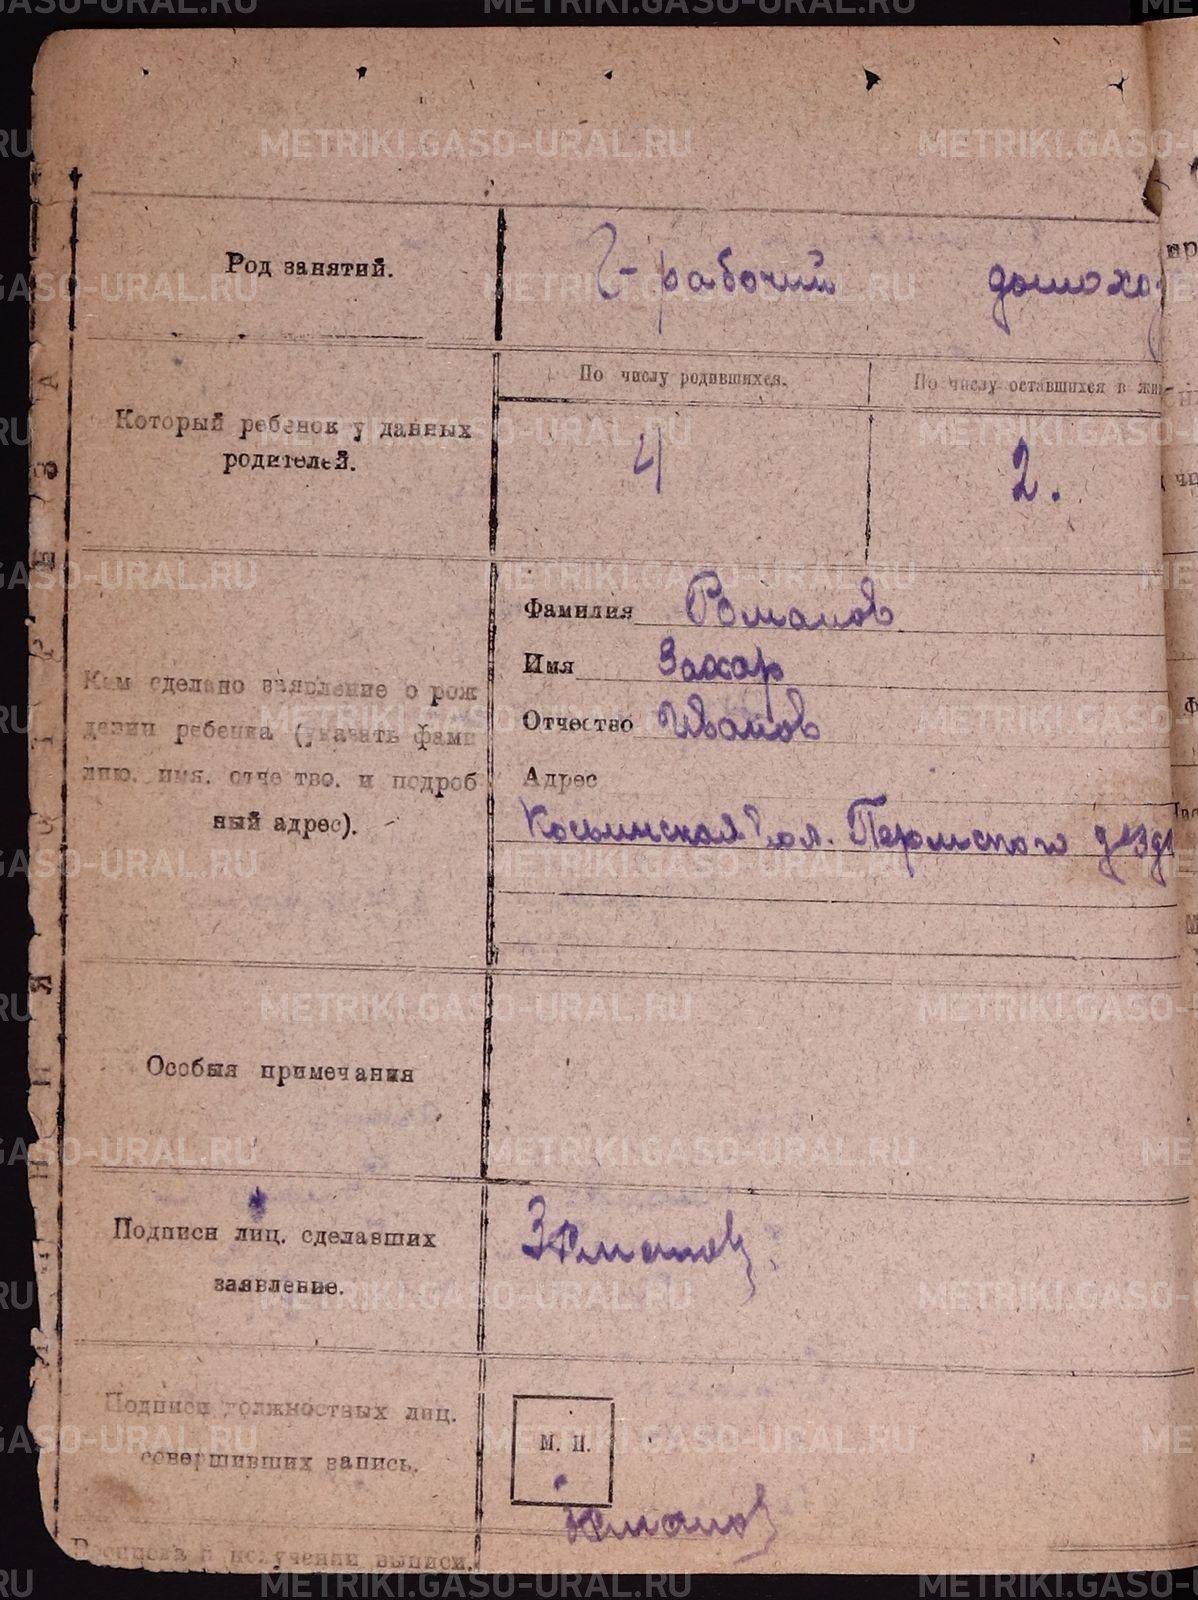 Род занятий.
рабочий
По числу родившихся.
По числу оставшихся в жи
Который ребенок у данных
родителей.
4
2.
Фамилия Романов
Имя Захар
Отчество Иванов
Кем сделано заявление о рож
дении ребенка (указать фами
лию. имя. отче тво. и подроб
ный адрес).
Адрес
Косьинская вол. Пермского
Особыя примечания
Подписи лиц. сделавших
заявление.
ЗРоманов
Подписи должностных лиц.
совершивших запись.
М. П.
Росписка в получении выписи.
METRIKI.GASO-URAL.RU